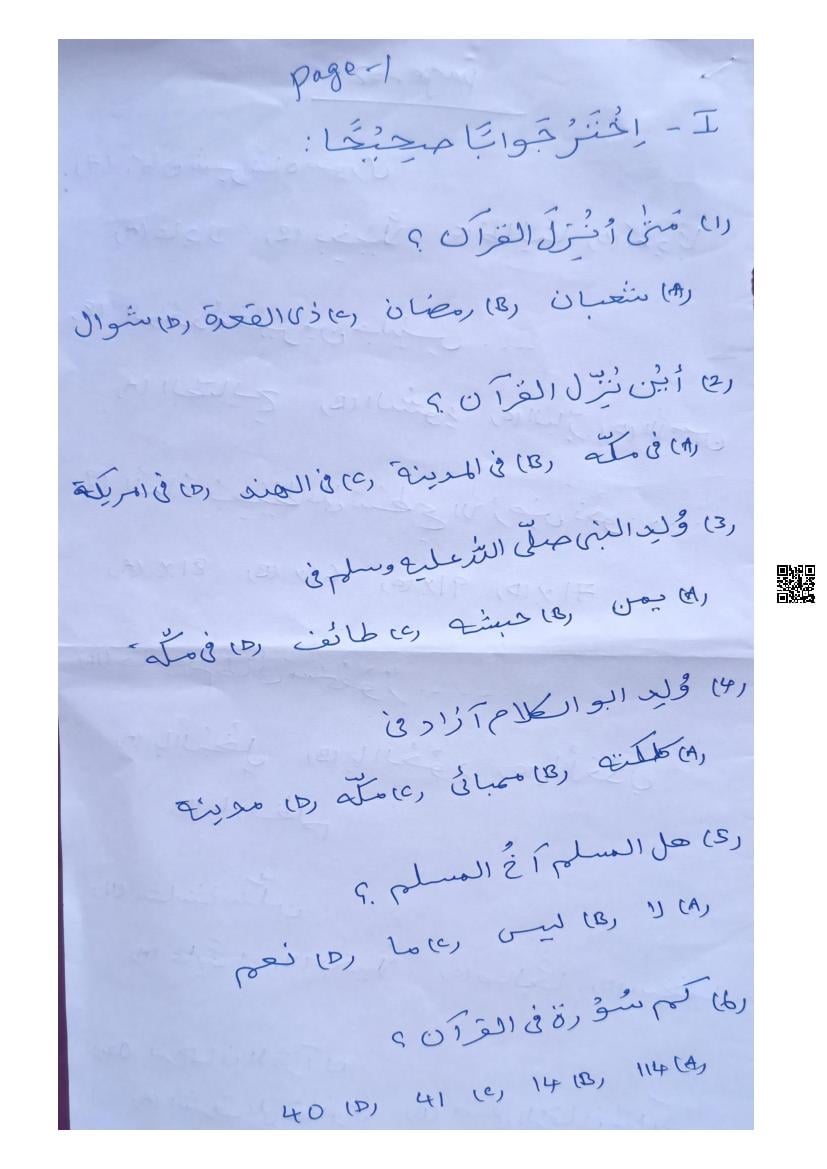 Page-1
I - اِخْتَرْ جَوابًا صحِيْحًا :
(1) مَتٰى أُنْزِلَ القرآن ؟
(A) شعبان (B) رمضان (C) ذى القعدة (D) شوال
(2) أيْن نُزِّل القرآن ؟
(A) فى مكّه (B) فى المدينة (C) فى الهند (D) فى امريكة
(3) وُلِد النبى صلّى الله عليه وسلم فى
(A) يمن (B) حبشه (C) طائف (D) فى مكّه
(4) وُلِد ابو الكلام آزاد فى
(A) كلكته (B) ممبائى (C) مكّه (D) مدينه
(5) هل المسلم آخُ المسلم ؟
(A) لا (B) ليس (C) ما (D) نعم
(6) كم سُوْرة فى القرآن ؟
(A) 114 (B) 14 (C) 41 (D) 40